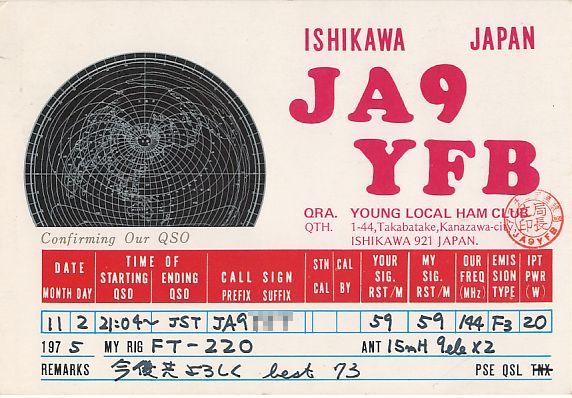 ISHIKAWA JAPAN
JA9
YFB
QRA. YOUNG LOCAL HAM CLUB
QTH. 1-44,Takabatake,Kanazawa-city,
ISHIKAWA 921 JAPAN.
局長印
JA9YFB
Confirming Our QSO
DATE MONTH DAY TIME OF STARTING QSO ENDING QSO CALL SIGN PREFIX SUFFIX STN CAL CAL BY YOUR SIG. RST/M MY SIG. RST/M OUR FREQ (MHz) EMIS SION TYPE IPT PWR (W)
11 2 21:04~ JST JA9 59 59 144 F3 20
1975 MY RIG FT-220 ANT 15mH 9ele x2
REMARKS 今後共ヨロシク best 73 PSE QSL TNX